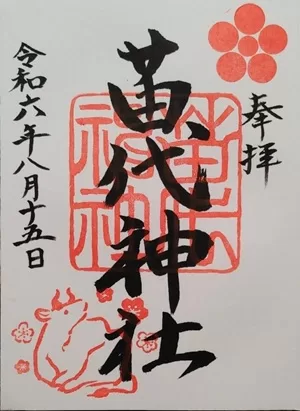 奉拝
苗代神社
令和六年八月十五日